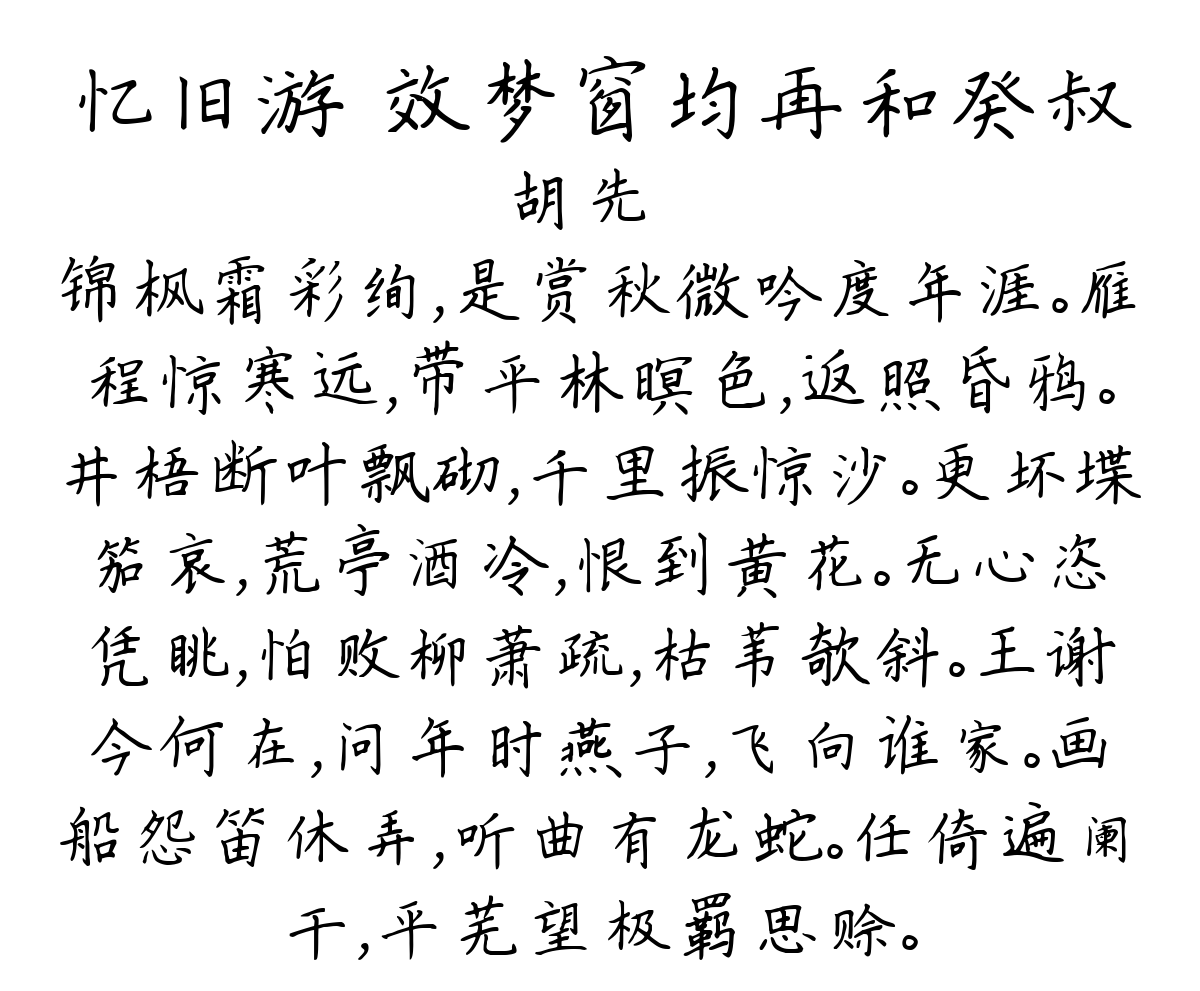 忆旧游 效梦窗均再和癸叔
胡先
锦枫霜彩绚,是赏秋微吟度年涯。雁
程惊寒远,带平林暝色,返照昏鸦。
井梧断叶飘砌,千里振惊沙。更坏堞
笳哀,荒亭酒冷,恨到黄花。无心恣
凭眺,怕败柳萧疏,枯苇欹斜。王谢
今何在,问年时燕子,飞向谁家。画
船怨笛休弄,听曲有龙蛇。任倚遍阑
干,平芜望极羁思赊。